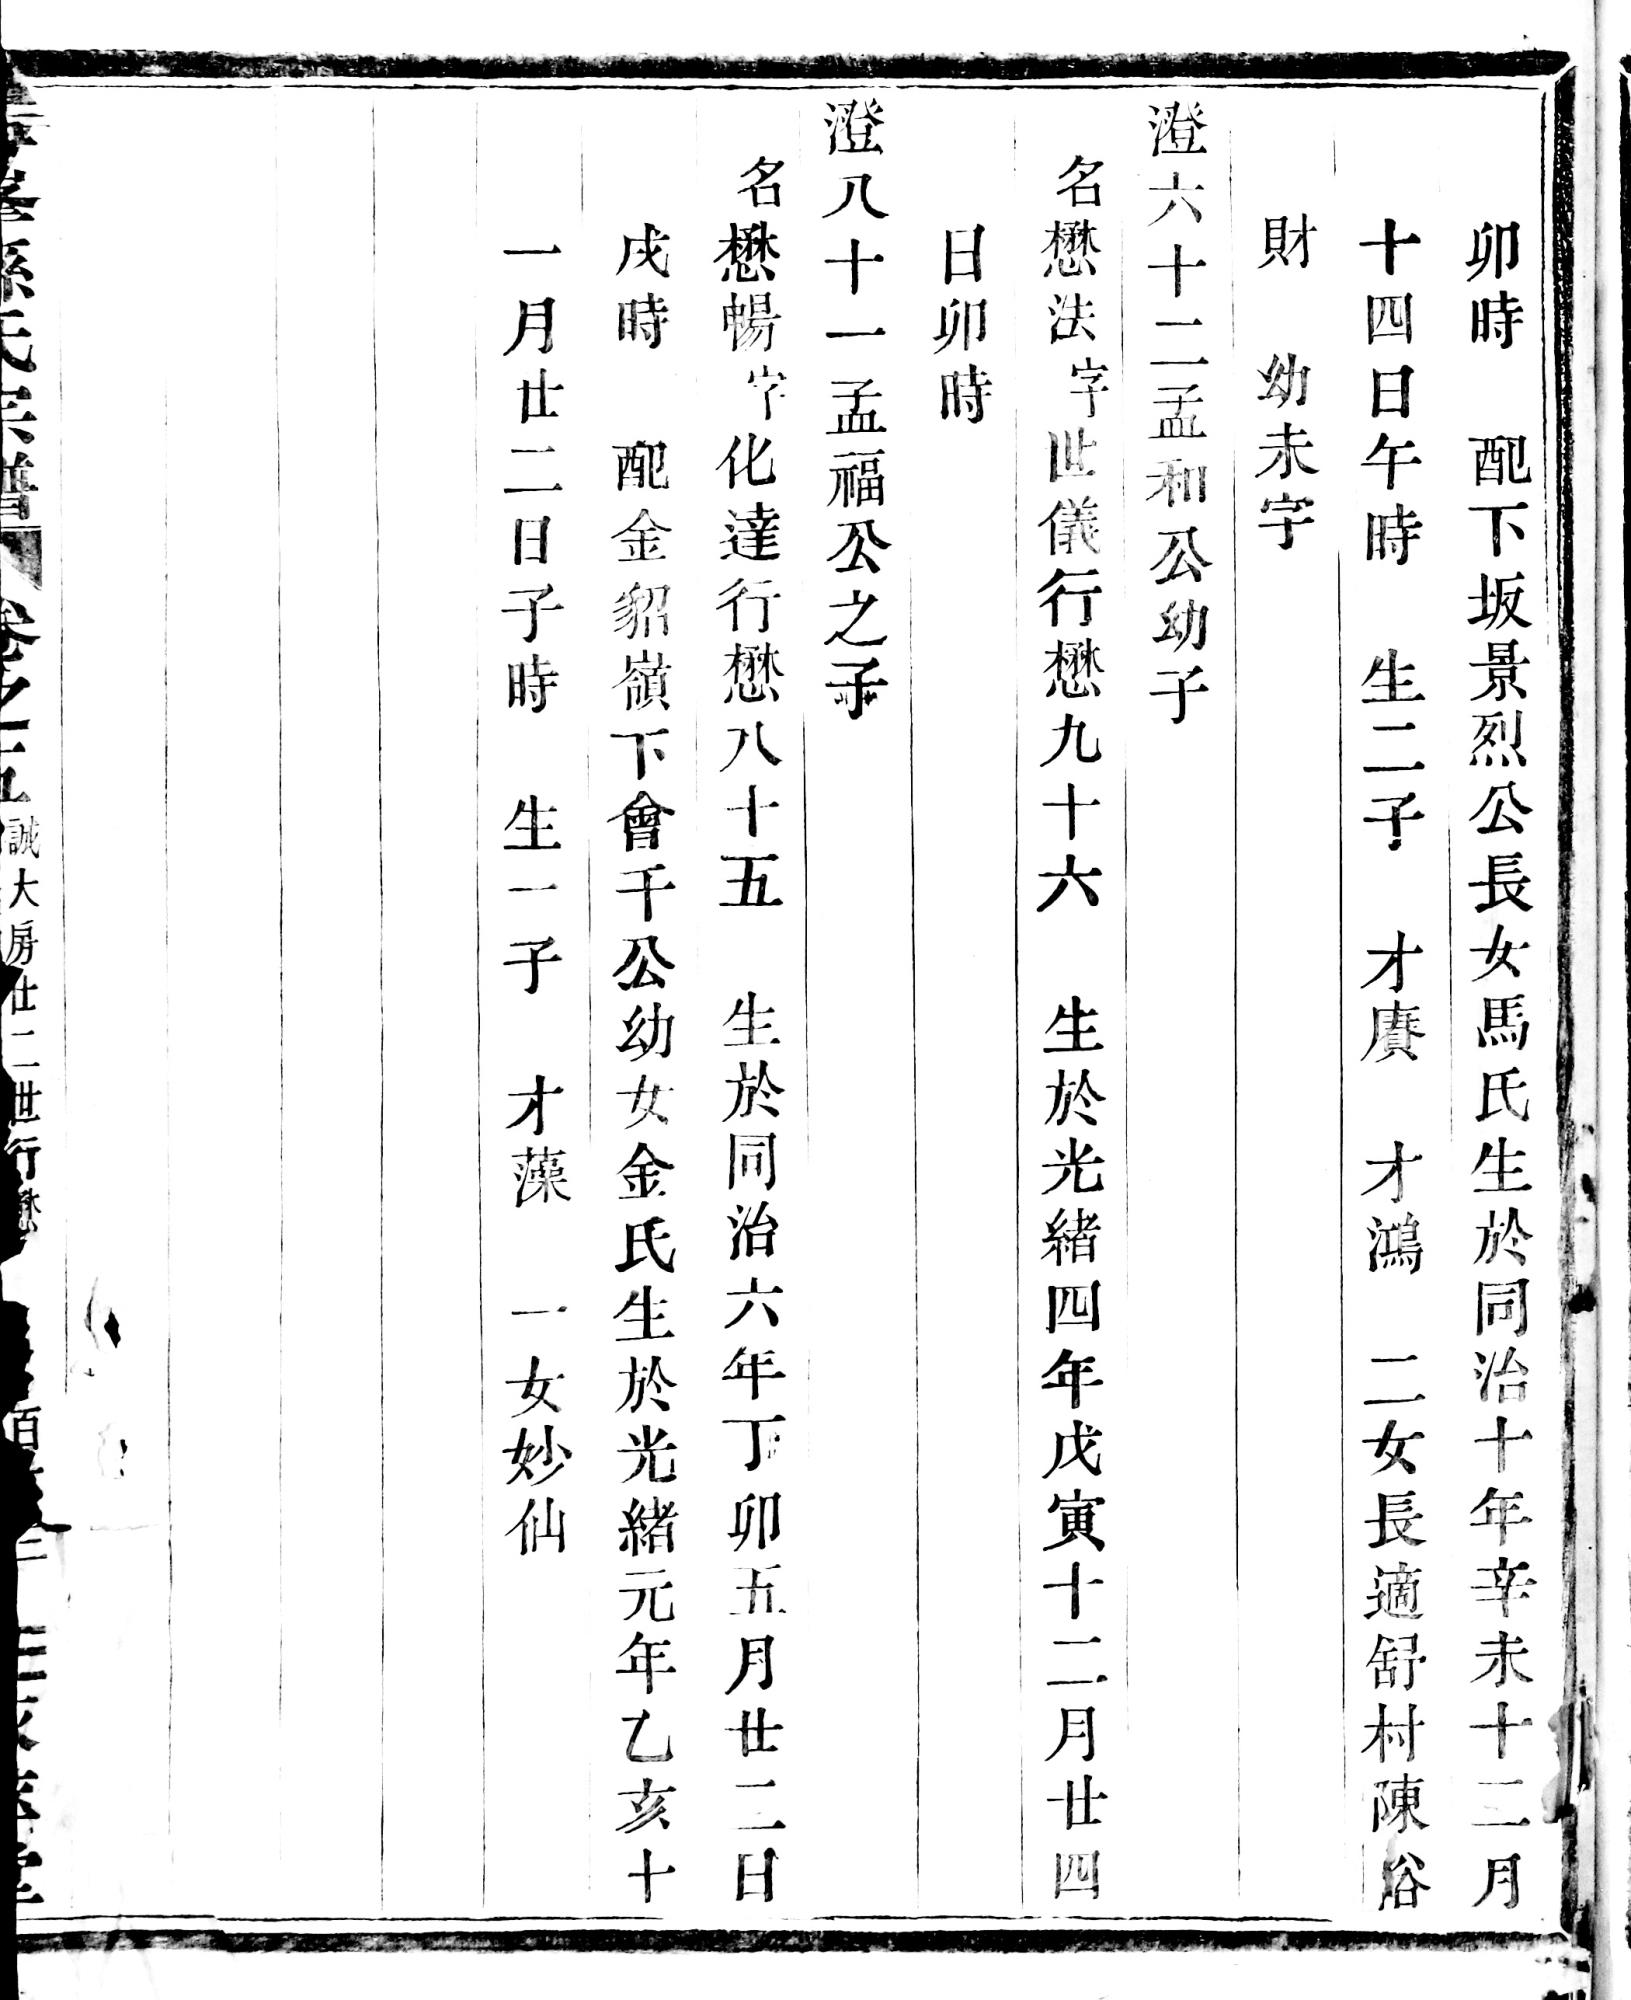 卯時　配下坂景烈公長女馬氏生於同治十年辛未十二月
十四日午時　生二子　才賡　才鴻　二女長適舒村陳裕
財　幼未字
澄六十二孟和公幼子
名懋法字世儀行懋九十六　生於光緒四年戊寅十二月廿四
日卯時
澄八十一孟福公之子
名懋暢字化達行懋八十五　生於同治六年丁卯五月廿二日
戌時　配金貂嶺下會千公幼女金氏生於光緒元年乙亥十
一月廿二日子時　生一子　才藻　一女妙仙
孫氏宗譜　卷之五　誠大房廿二世行懋